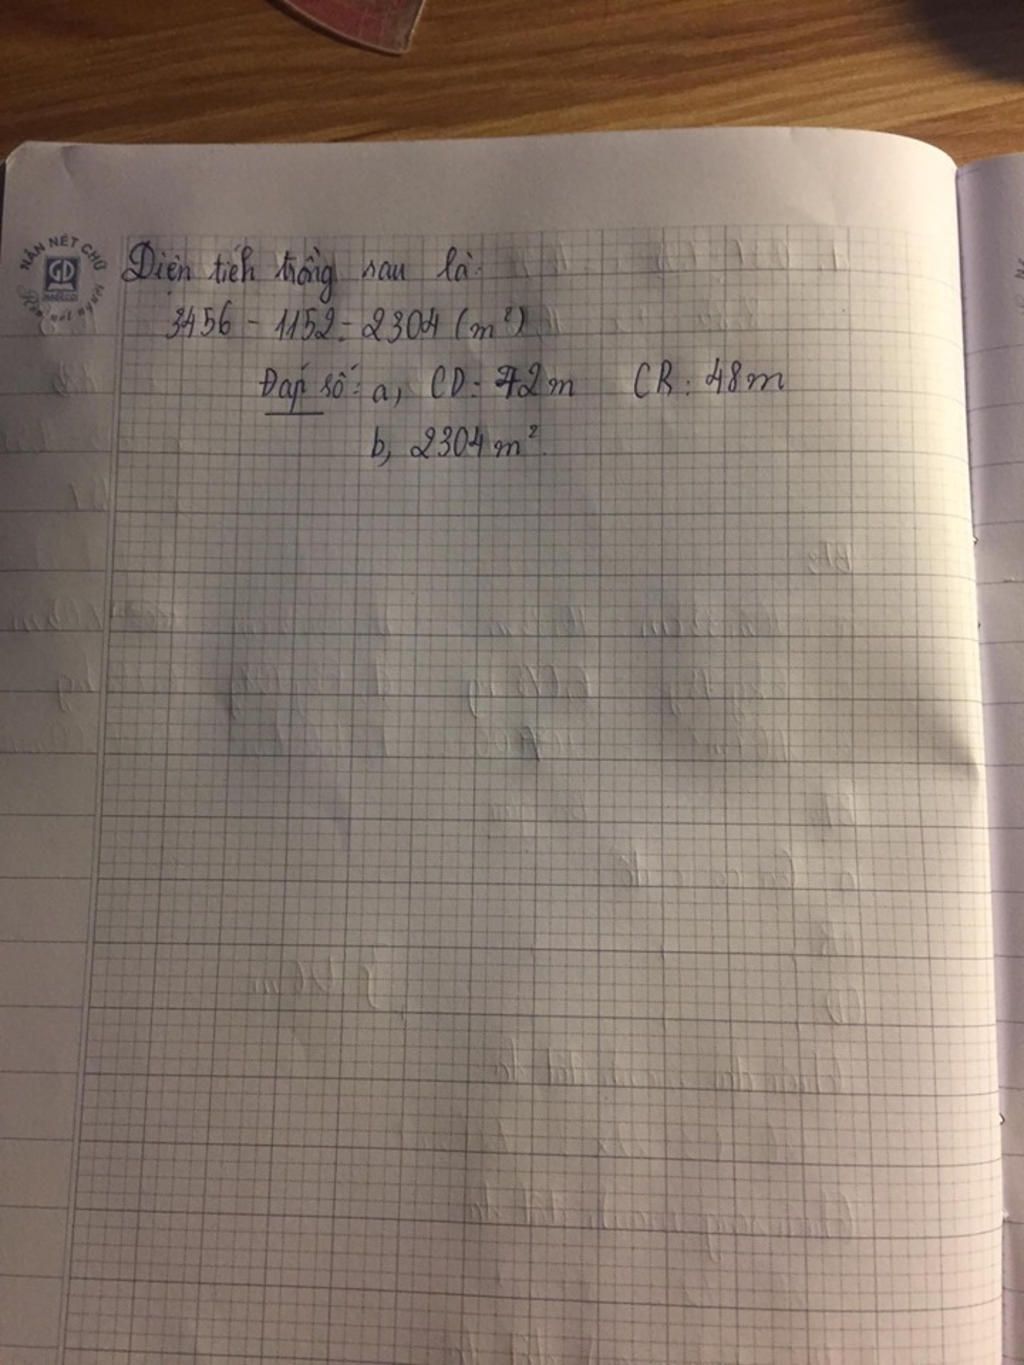 NẮN NÉT CHỮ
GD
Diện tích trồng rau là:
3456 - 1152 = 2304 (m²)
Đáp số: a, CD: 72m CR: 48m
b, 2304m².